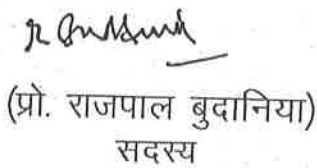 (प्रो. राजपाल बुदानिया)
सदस्य